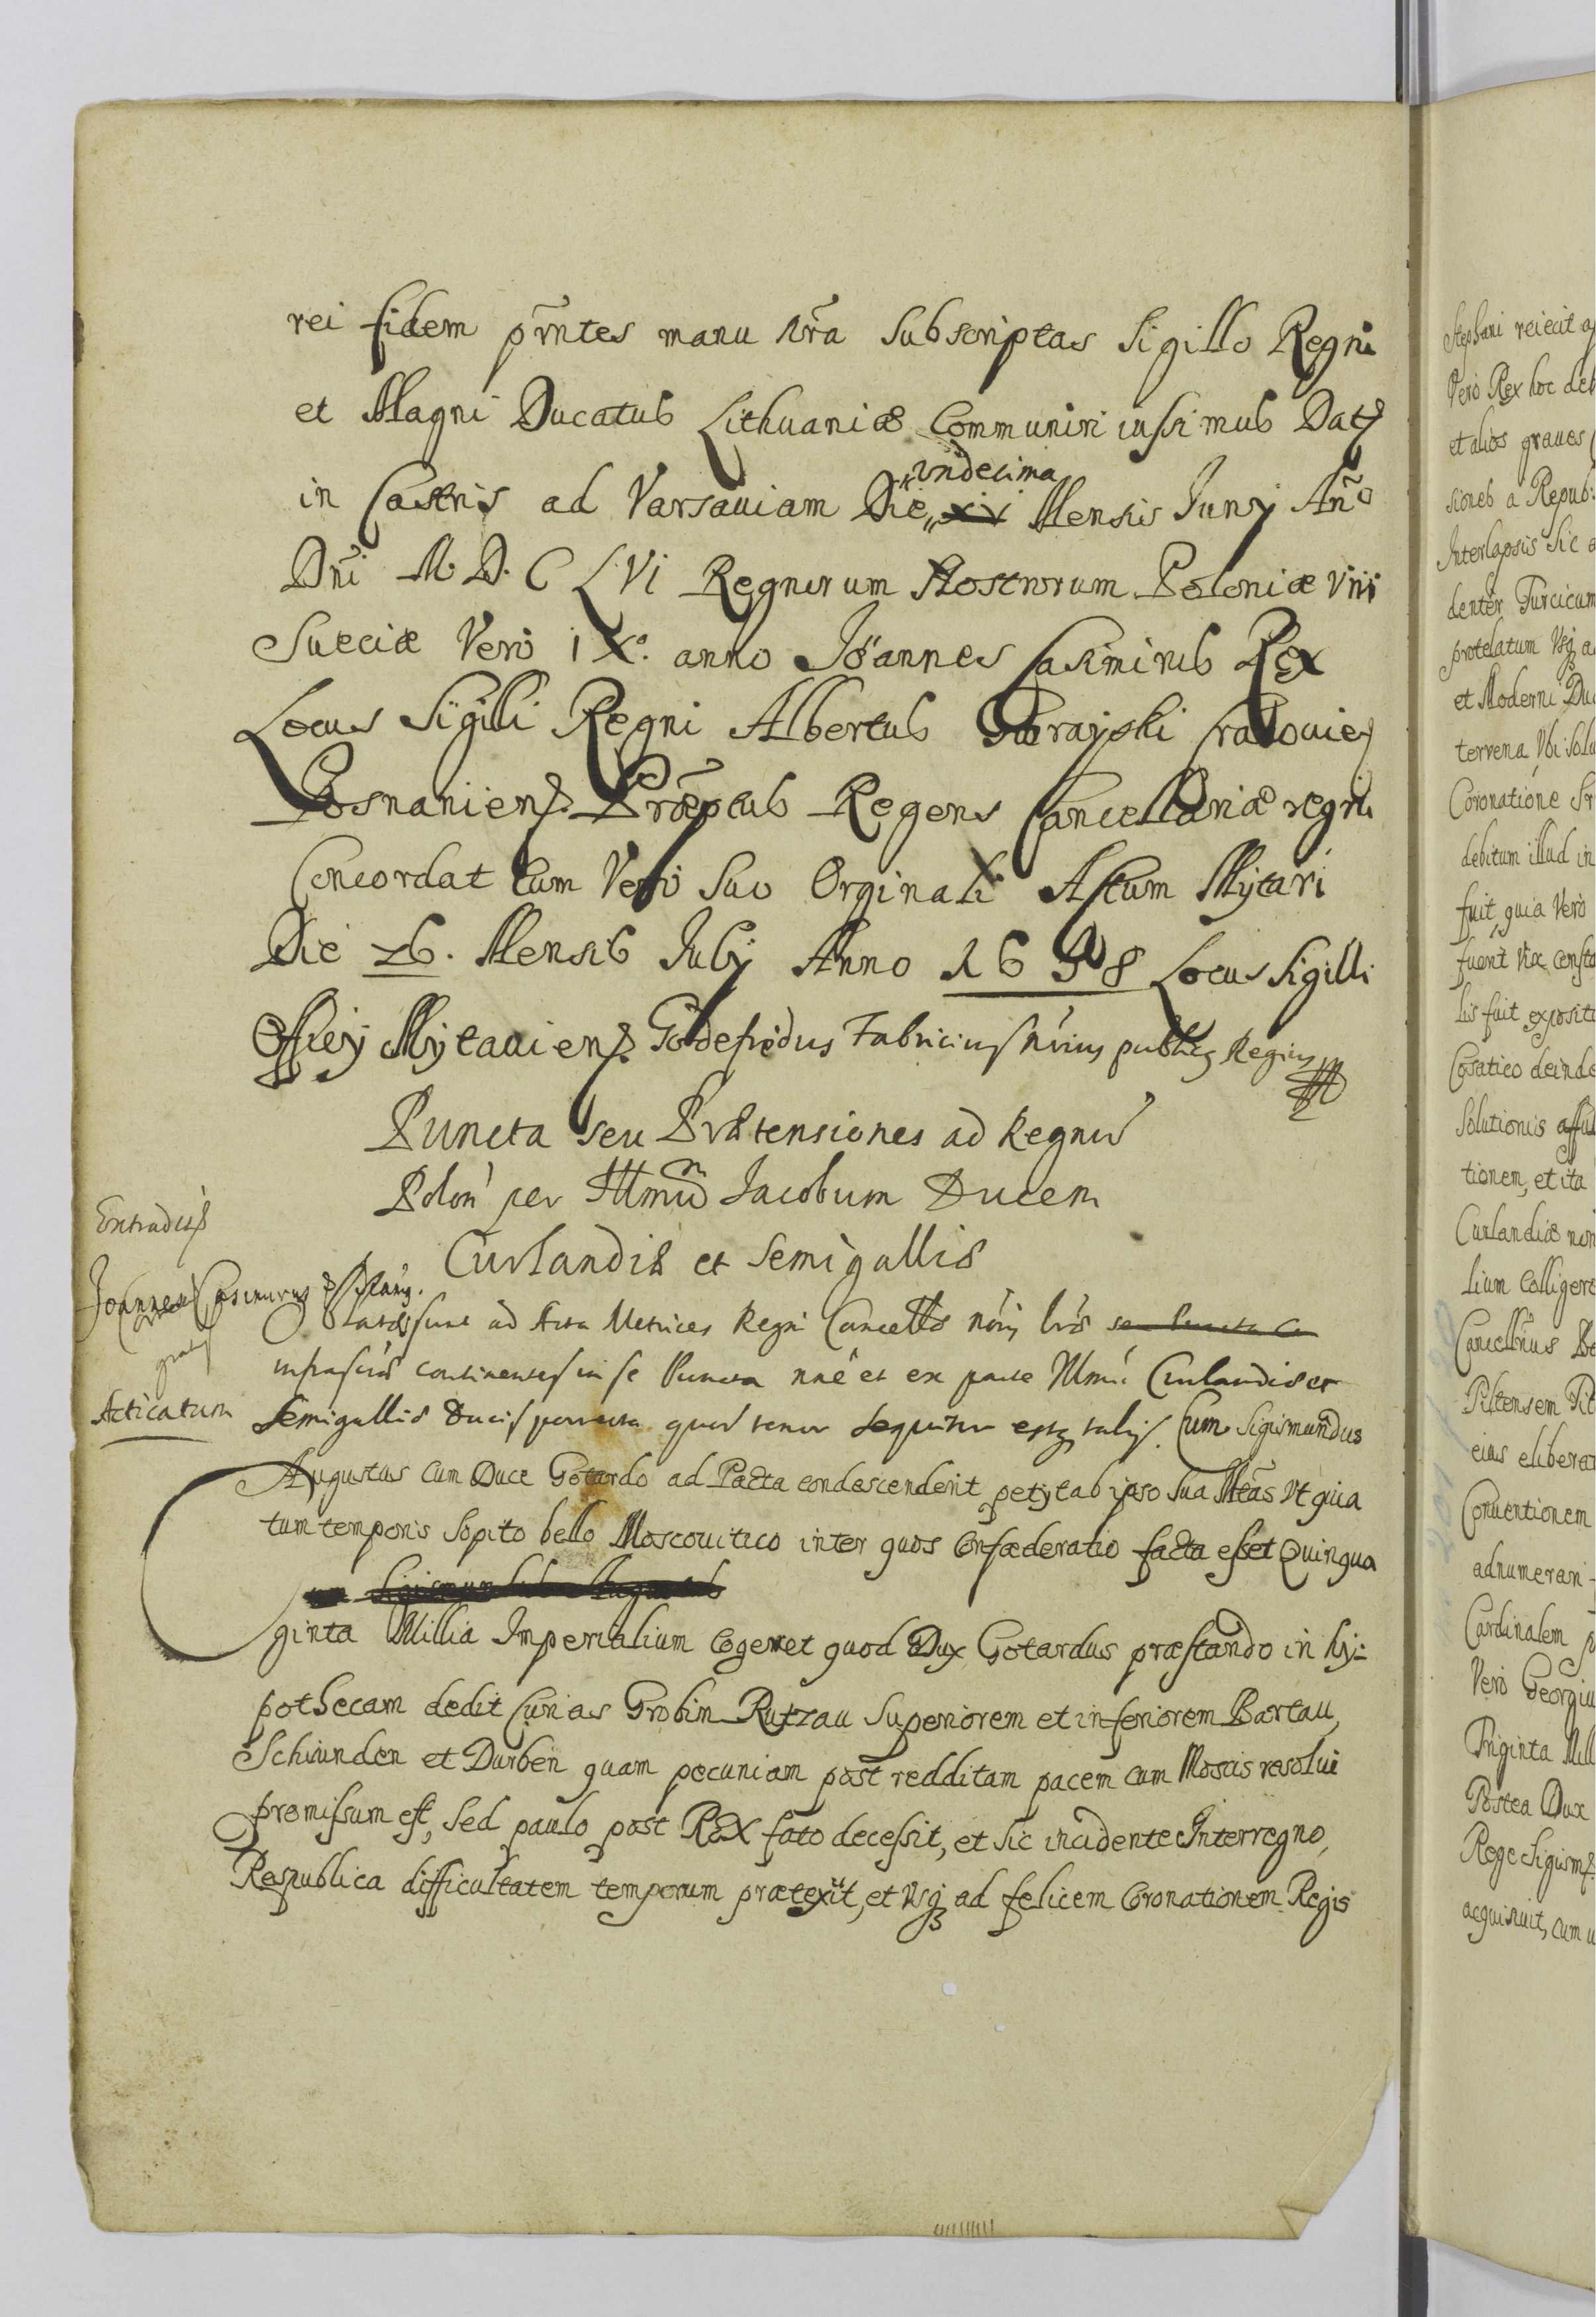 rei fidem pr̃ntes manu nr̃a Subscriptas Sigillo Regni
et Magni Ducatus Lithuaniæ Communiri iussimus Dat
in Castris ad Varsauiam Die undecima Mensis Junij An̄o
Dn̄i M. D. C LVI Regnorum Nostrorum Poloniæ VIII
Sueciæ Vero IX.° anno Joannes Casimirus Rex
Locus Sigilli Regni Albertus Gorayski Cracouien
Posnanien. Præptus Regens Cancellariæ regni
Concordat Cum Vero Suo Orginali Actum Mytavi
Die 26. Mensis July Anno 1658 Locus Sigilli
Officij Mytauien. Godefridus Fabricius Nr̃ius publicq Regius
Puncta seu Prætensiones ad Regnũ
Polon per Illmũ Jacobum Ducem
Curlandiæ et Semigalliæ
Extradit
Joannes Casimirus
gratis
Oblatæ sunt ad Acta Metrices Regni Cancellæ
infrascr continentes in se Puncta nn̄e et ex parte Illmi Curlandiæ et
Acticatum
Semigalliæ Ducis porrecta quorũ tenor sequitur estq talis. Cum Sigismundus
Augustus cum Duce Gotardo ad Pacta condescenderit petijt ab ipso Sua Mtãs Vt quia
tum temporis Sopito bello Moscouitico inter quos Confæderatio facta esset Quinqua
ginta Millia Imperialium Cogeret quod Dux Gotardus præstando in hy=
pothecam dedit Curias Grobin Rutzau Superiorem et inferiorem Bartau,
Schrunden et Durben quam pecuniam post redditam pacem cum Moscis resolui
promissum est, Sed paulo post Rex fato decessit, et Sic incidente Interregno,
Respublica difficultatem temporum prætexiit, et Vsq ad felicem Coronationem Regis
Stephani reiecit
Vero Rex hoc
et alios graues
sioneb a Repub:
Interlapsis Sic
denter Turcicum
protelatum Vsq
et Moderni
terrena Vbi
Coronatione
debitum illud in
fuit, quia Vero
fuerit Vix
lis fuit
Cosatico deinde
Solutionis
tionem, et ita
Curlandiæ non
lium Colligere
Cancellr̃ius
Piltensem
eius
Conuentionem
adnumeran
Cardinalem
Vero
Triginta
Postea Dux
Rege
acquisiuit, cum